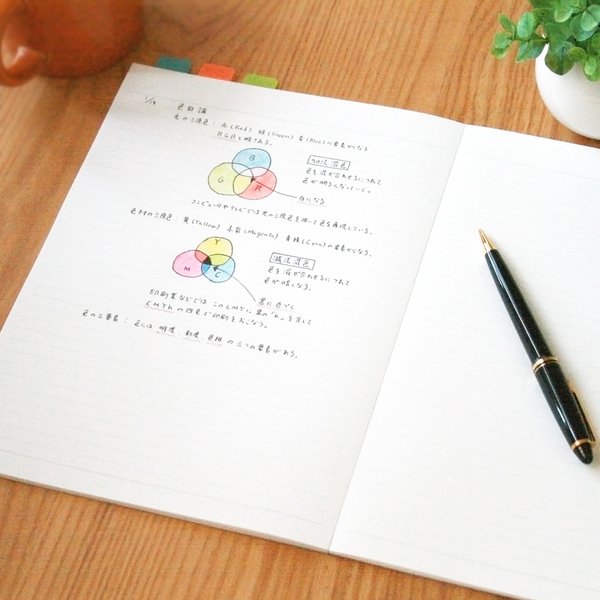 1/19 色彩論
光の三原色: 赤(Red) 緑(Green) 青(Blue)の要素からなる
RGBと略される。
B
G
R
加法混色
色を混ぜ合わせるにつれて
色が明るくなっていく
白になる
コンピュータやテレビでは光の三原色を用いて色を再現している。
色材の三原色 黄(Yellow) 赤紫(Magenta) 青緑(Cyan)の要素からなる。
Y
M
C
減法混色
色を混ぜ合わせるにつれて
色が暗になる。
黒に近づく
印刷業などではこのCMYに黒の"K"を足して
CMYKの四色で印刷をおこなう。
色の三要素: 色には 明度 彩度 色相 の三つの要素がある。